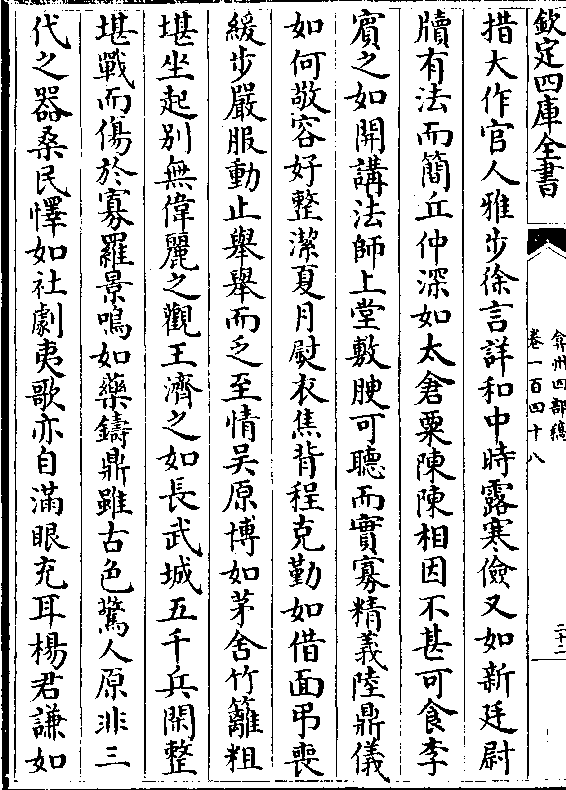 欽定四庫全書
弇州四部稿
卷一百四十八
二十二
措大作官人雅步徐言詳和中時露寒儉又如新廷尉
牘有法而簡丘仲深如太倉粟陳陳相因不甚可食李
賓之如開講法師上堂敷腴可聽而實寡精義陸鼎儀
如何敬容好整潔夏月熨衣焦背程克勤如借面弔喪
緩步嚴服動止舉舉而乏至情吳原博如茅舍竹籬粗
堪坐起别無偉麗之觀王濟之如長武城五千兵閑整
堪戰而傷於寡羅景鳴如藥鑄鼎雖古色驚人原非三
代之器桑民懌如社劇夷歌亦自滿眼充耳楊君謙如